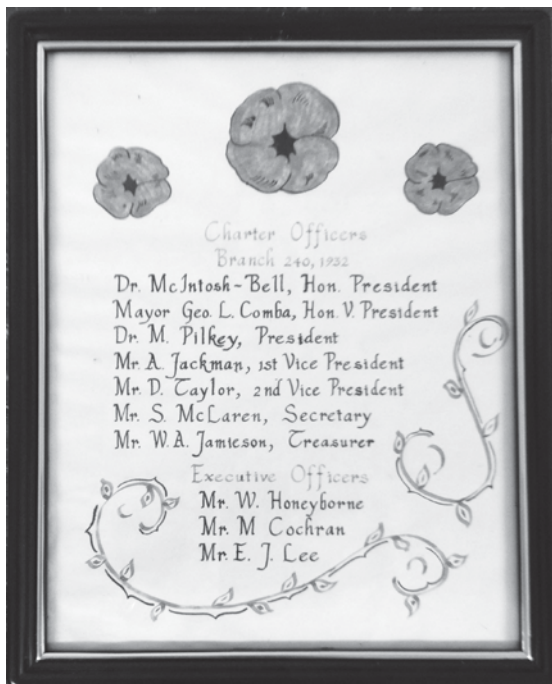 Charter Officers
Branch 240, 1932
Dr. McIntosh-Bell, Hon. President
Mayor Geo. L. Comba, Hon. V. President
Dr. M. Pilkey, President
Mr. A. Jackman, 1st Vice President
Mr. D. Taylor, 2nd Vice President
Mr. S. McLaren, Secretary
Mr. W.A. Jamieson, Treasurer
Executive Officers
Mr. W. Honeyborne
Mr. M Cochran
Mr. E. J. Lee